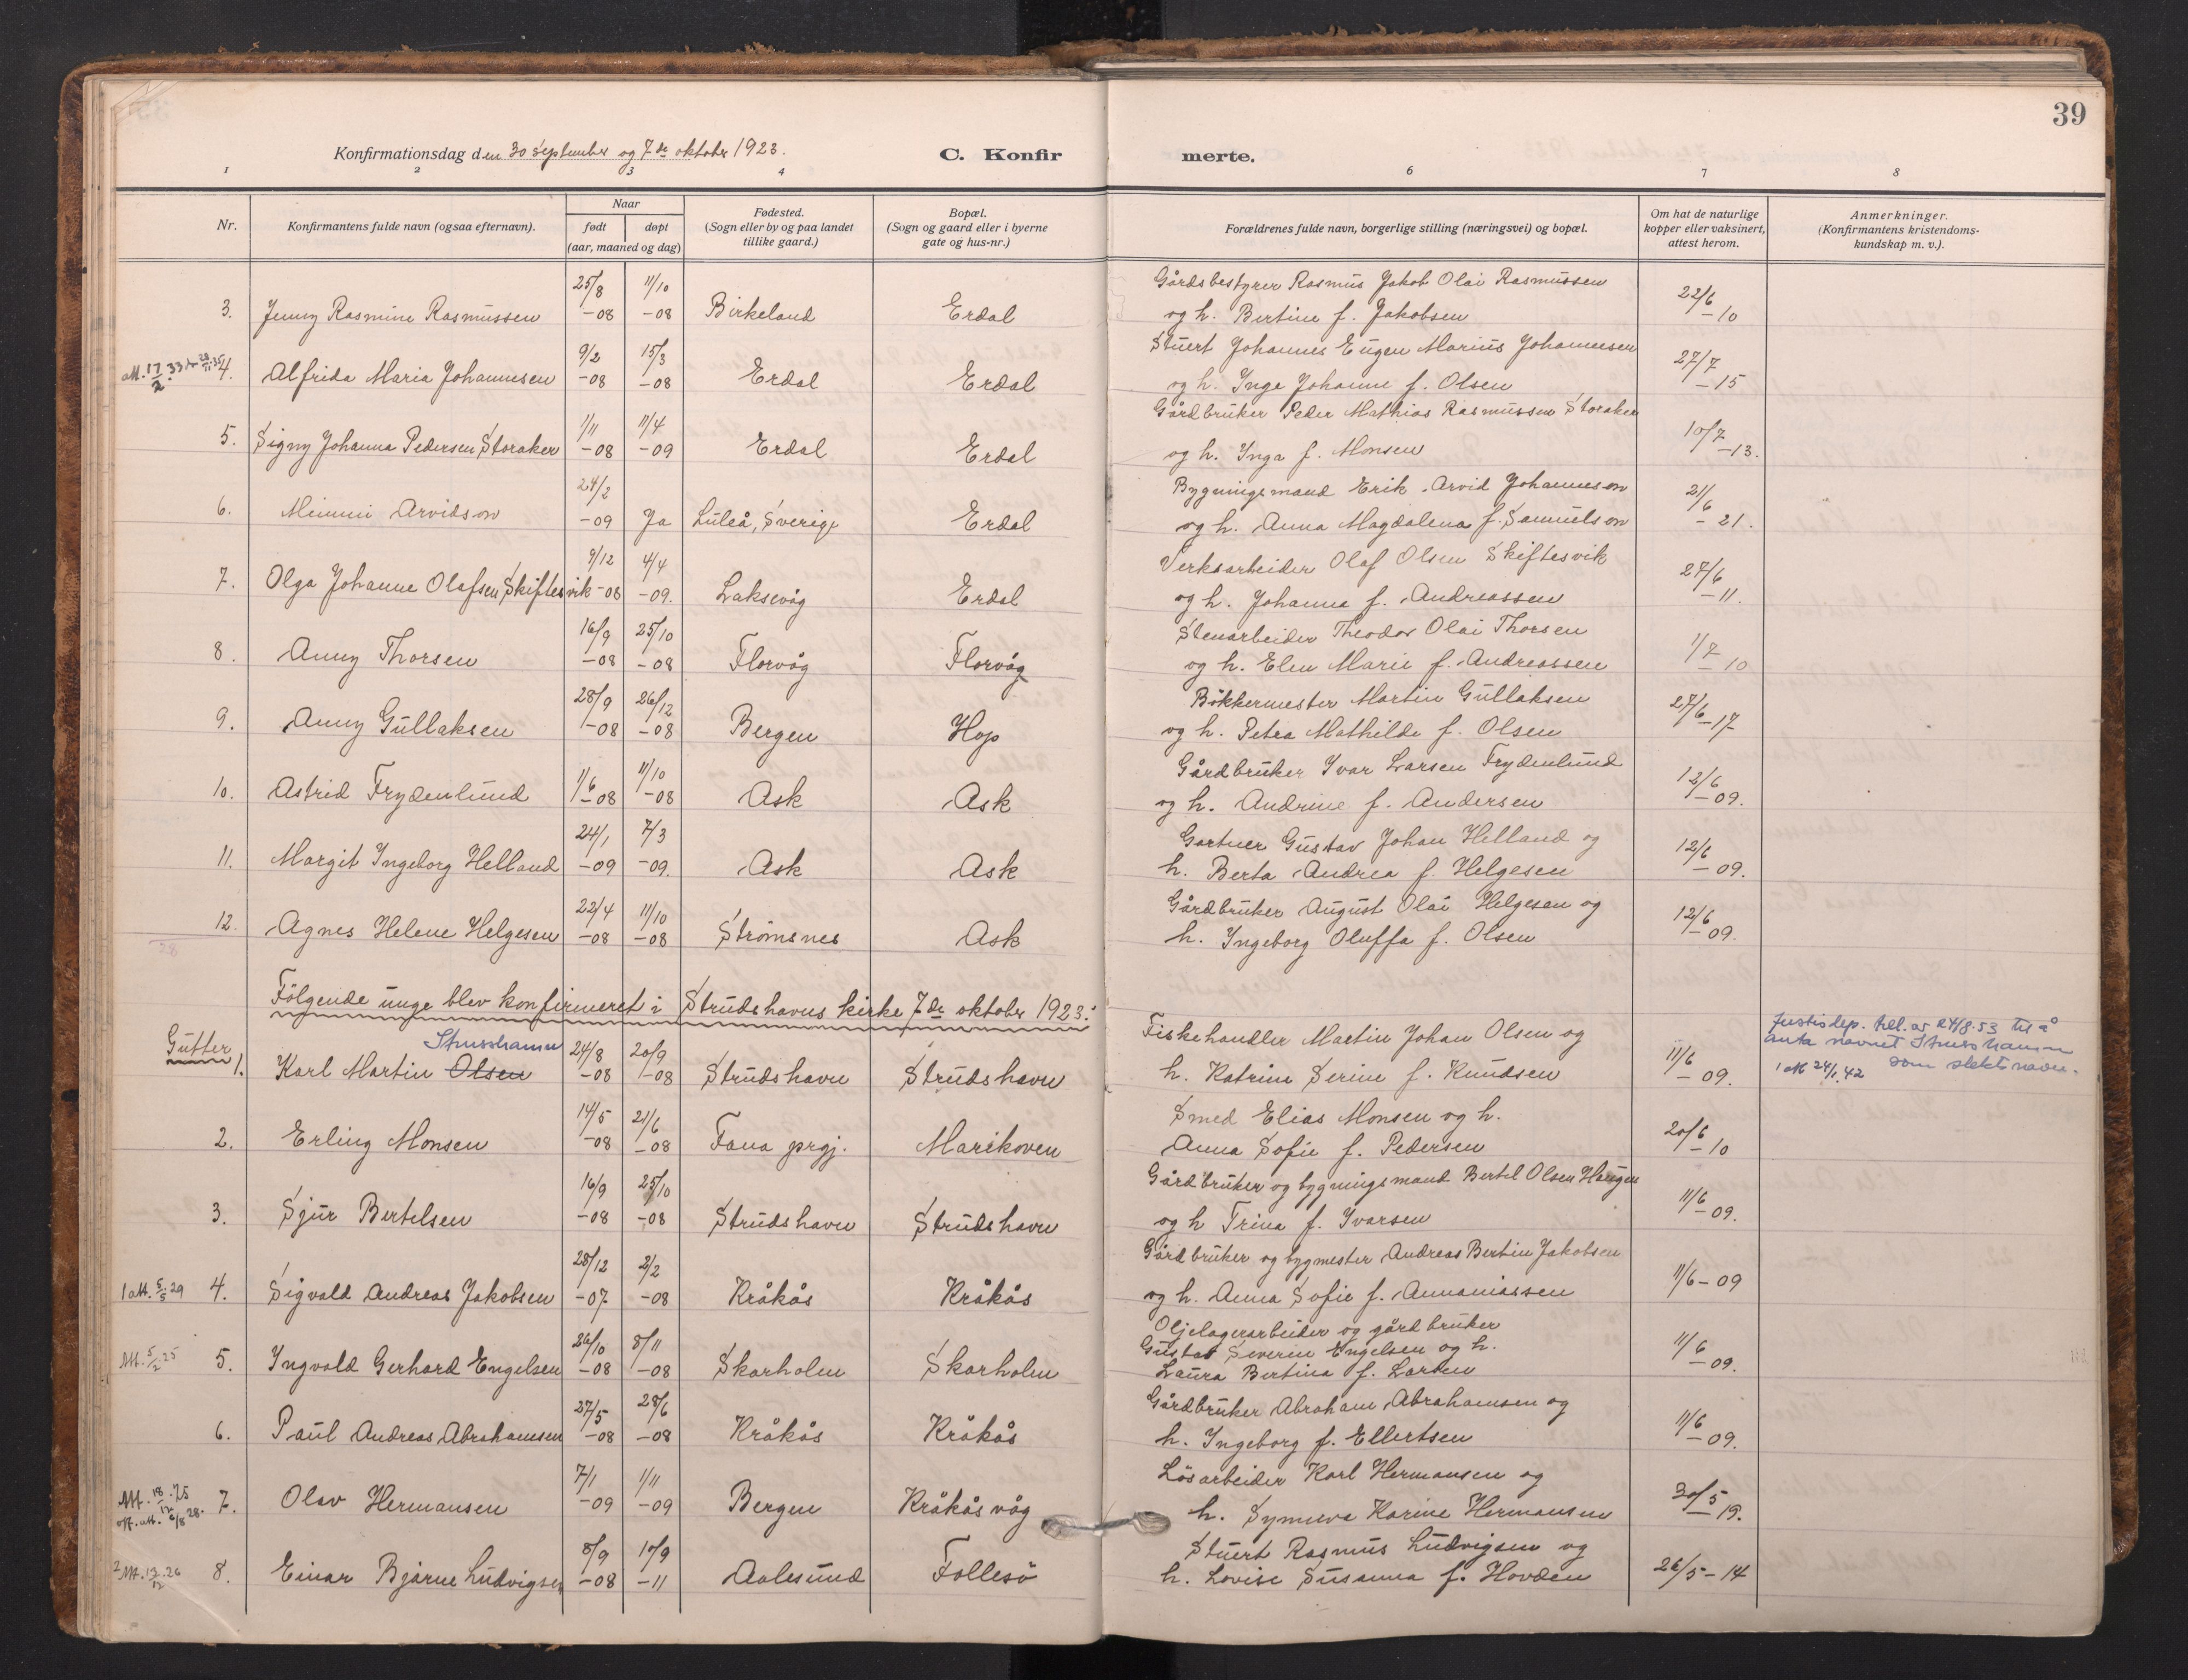 39
Konfirmationsdag den 30 September og 7de oktober 1923. C. Konfirmerte.
1 2 3 4 6 7 8
Nr. Konfirmantens fulde navn (ogsaa efternavn). Naar født døpt (aar, maaned og dag) Fødested. (Sogn eller by og paa landet tillike gaard.) Bopæl. (Sogn og gaard eller i byerne gate og hus-nr.) Forældrenes fulde navn, borgerlige stilling (næringsvei) og bopæl. Om hat de naturlige kopper eller vaksinert, attest herom. Anmerkninger. (Konfirmantens kristendomskundskap m. v.).
3. Jenny Rasmine Rasmussen 25/8 -08 11/10 -08 Birkeland Erdal Gårdsbestyrer Rasmus Jakob Olai Rasmussen
og h. Bertine f. Jakobsen 22/6 -10
att. 17/2.33 28/11.35 4. Alfrida Maria Johannesen 9/2 -08 15/3 -08 Erdal Erdal Stuert Johannes Eugen Marius Johannesen
og h. Inga Johanne f. Olsen 27/7 -15
5. Signy Johanna Pedersen Storaker 1/11 -08 11/4 -09 Erdal Erdal Gårdbruker Peder Mathias Rasmussen Storaker
og h. Inga f. Monsen 10/7 -13.
6. Mimmi Arvidson 24/2 -09 Ja Luleå, Sverige Erdal Bygningsmand Erik Arvid Johanneson
og h. Anna Magdalena f. Samuelson 21/6 -21.
7. Olga Johanne Olafsen Skiftesvik 9/12 -08 4/4 -09. Laksevåg Erdal Verksarbeider Olaf Olsen Skiftesvik
og h. Johanna f. Andreassen 27/6 -11.
8. Anny Thorsen 16/9 -08 25/10 -08 Florvåg Florvåg Stenarbeider Theodor Olai Thorsen
og h. Elen Marie f. Andreassen 1/7 -10
9. Anny Gullaksen 28/9 -08 26/12 -08 Bergen Hop Bøkkermester Martin Gullaksen
og h. Petra Mathilde f. Olsen 27/6 -17
10. Astrid Frydenlund 1/6 -08 11/10 -08 Ask Ask Gårdbruker Ivar Larsen Frydenlund
og h. Andrine f. Andersen 12/6 -09.
11. Margit Ingeborg Helland 24/1 -09 7/3 -09. Ask Ask Gartner Gustav Johan Helland og
h. Berta Andrea f. Helgesen 12/6 -09.
12. Agnes Helene Helgesen 22/4 -08 11/10 -08 Strömsnes Ask Gårdbruker August Olai Helgesen og
h. Ingeborg Oluffa f. Olsen 12/6 -09.
28
Følgende unge blev konfirmeret i Strudshavns kirke 7de oktober 1923:
Gutter
1. Karl Martin Olsen Strusshamn 24/8 -08 20/9 -08 Strudshavn Strudshavn Fiskehandler Martin Johan Olsen og
h. Katrine Serine f. Knudsen 11/6 -09. Justisdep. till. av 24/8.53 til å
anta navnet Strusshamn
som slektsnavn.
1 att 24/1.42
2. Erling Monsen 14/5 -08 21/6 -08 Fana prgj. Marikoven Smed Elias Monsen og h.
Anna Sofie f. Pedersen 20/6 -10
3. Sjur Bertelsen 16/9 -08 25/10 -08 Strudshavn Strudshavn Gårdbruker og bygningsmand Bertel Olsen Haugen
og h Trina f. Ivarsen 11/6 -09.
1 att. 5/5.29 4. Sigvald Andreas Jakobsen 28/12 -07 2/2 -08 Kråkås Kråkås Gårdbruker og bygmester Andreas Bertin Jakobsen
og h. Anna Sofie f. Annaniassen 11/6-09
Att. 5/2.25 5. Ingvald Gerhard Engelsen 26/10 -08 8/11 -08 Skarholm Skarholm Oljelagerarbeider og gårdbruker
Gustav Severin Engelsen og h.
Laura Bertina f. Larsen 11/6 -09.
6. Paul Andreas Abrahamsen 27/5 -08 28/6 -08 Kråkås Kråkås Gårdbruker Abraham Abrahamsen og
h. Ingeborg f. Ellertsen 11/6 -09.
Att. 18/12.25 off. att. 6/8 28. 7. Olav Hermansen 7/1 -09 1/11 -09 Bergen Kråkåsvåg Løsarbeider Karl Hermansen og
h. Synneva Karine Hermansen 30/5 -19.
2 Att. 12/12.26 8. Einar Bjarne Ludvigsen 8/9 -08 10/9 -11 Aalesund Follesö Stuert Rasmus Ludvigsen og
h. Lovise Susanna f. Hovden 26/5-14